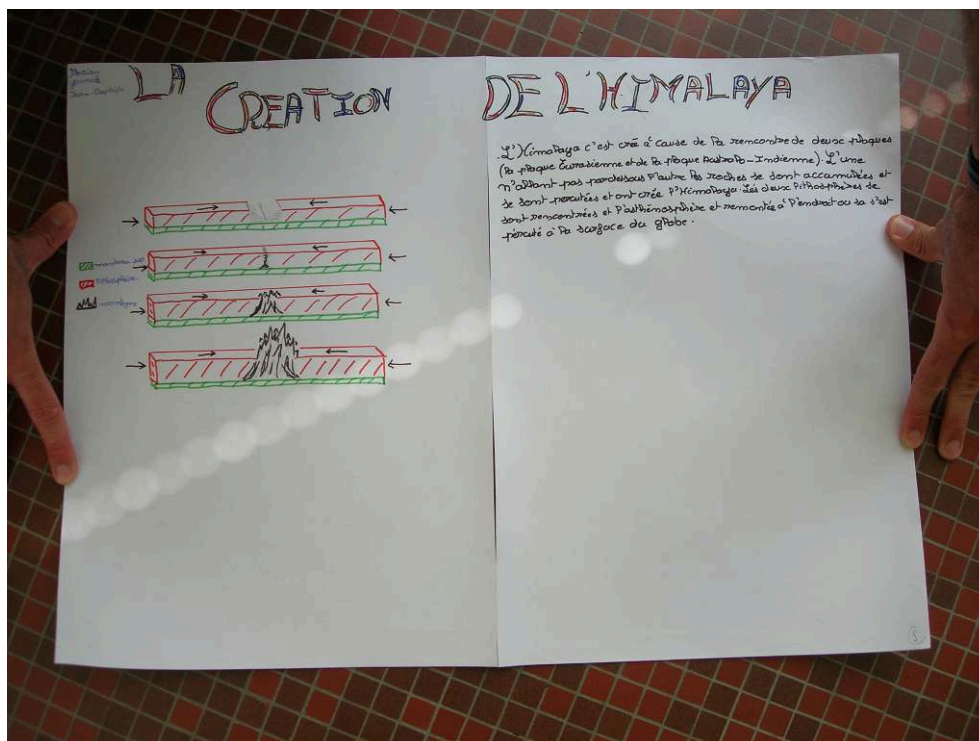 LA CREATION DE L'HIMALAYA
Jean-Baptiste
L'Himalaya c'est créé à cause de la rencontre de deux plaques
(la plaque Eurasienne et de la plaque Australo-Indienne). L'une
n'allant pas pardessous l'autre les roches se sont accumulées et
se sont percutées et ont crée l'Himalaya. Les deux lithosphères se
sont rencontrées et l'asthénosphère et remontée à l'endroit ou sa s'est
percuté à la surface du globe.
lithosphère
montagne
8